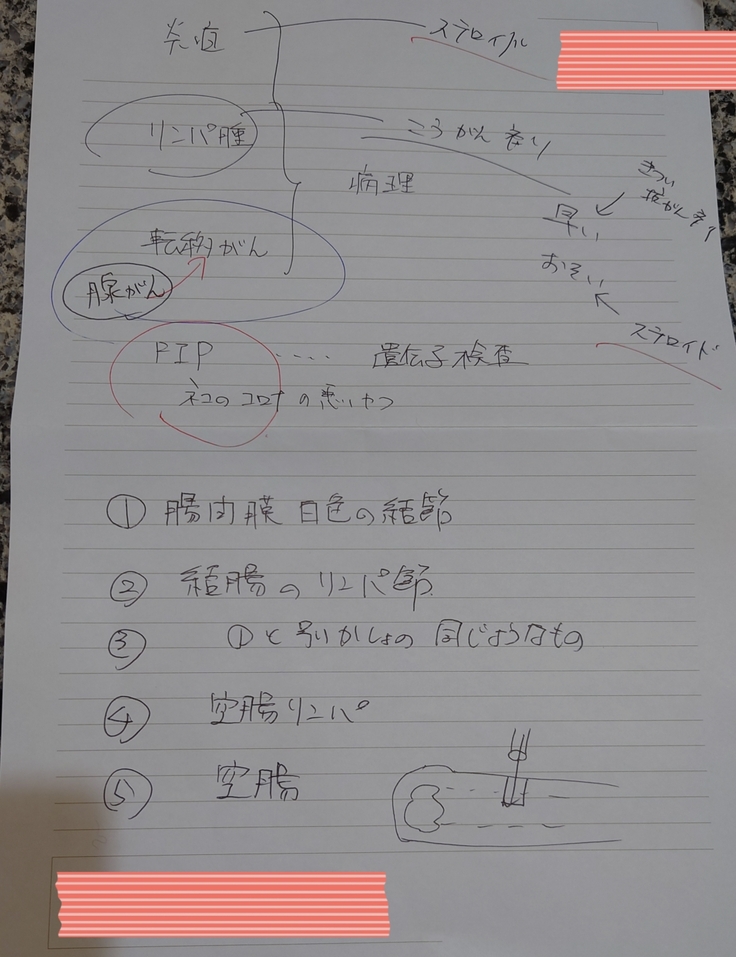 炎症 ステロイド
リンパ腫 こうがん剤
きつい
抗がん剤
病理
早い
転移がん
おそい
腺がん
ステロイド
FIP ‥‥ 遺伝子検査
ネコのコロナの悪いやつ
① 腸内膜 白色の結節
② 結腸のリンパ節
③ ①と別かしょの同じようなもの
④ 空腸リンパ
⑤ 空腸